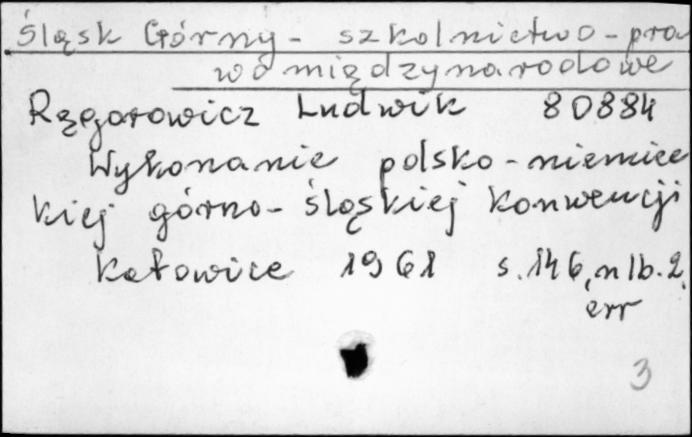 Śląsk Górny - szkolnictwo - pra
wo międzynarodowe
Rzęgarowicz Ludwik 80884
Wykonanie polsko-niemiec
kiej górno-śląskiej Konwencji
Katowice 1961 s. 146, nlb. 2,
err
3